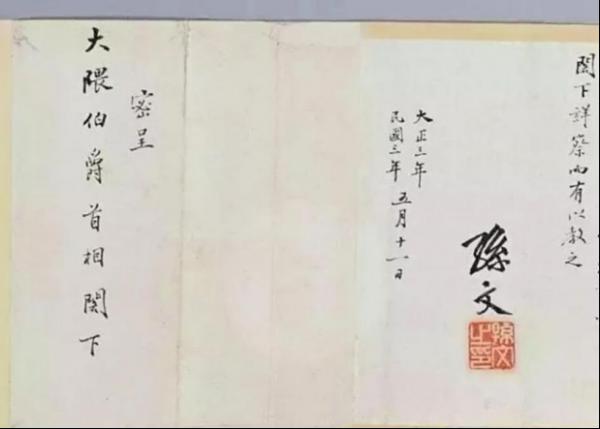 閣下詳察而有以教之
孫文
孫文之印
大正三年
民國三年 五月十一日
密呈
大隈伯爵首相閣下